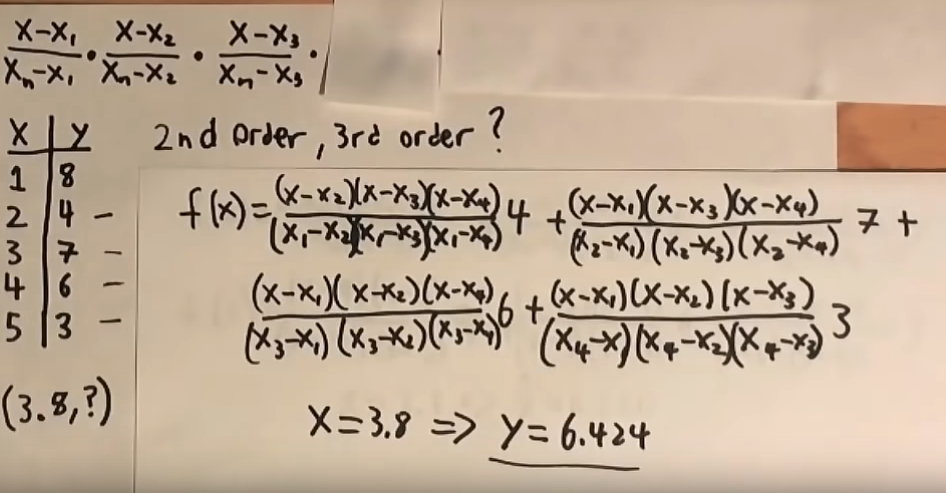 x-x₁/xₙ-x₁ · x-x₂/xₙ-x₂ · x-x₃/xₙ-x₃ ·
2nd order, 3rd order ?
x | y
1 | 8
2 | 4 -
3 | 7 -
4 | 6 -
5 | 3 -
(3.8,?)
f(x)=(x-x₂)(x-x₃)(x-x₄)/(x₁-x₂)(x₁-x₃)(x₁-x₄) 4 + (x-x₁)(x-x₃)(x-x₄)/(x₂-x₁)(x₂-x₃)(x₂-x₄) 7 +
(x-x₁)(x-x₂)(x-x₄)/(x₃-x₁)(x₃-x₂)(x₃-x₄) 6 + (x-x₁)(x-x₂)(x-x₃)/(x₄-x)(x₄-x₂)(x₄-x₃) 3
x=3.8 => y=6.424